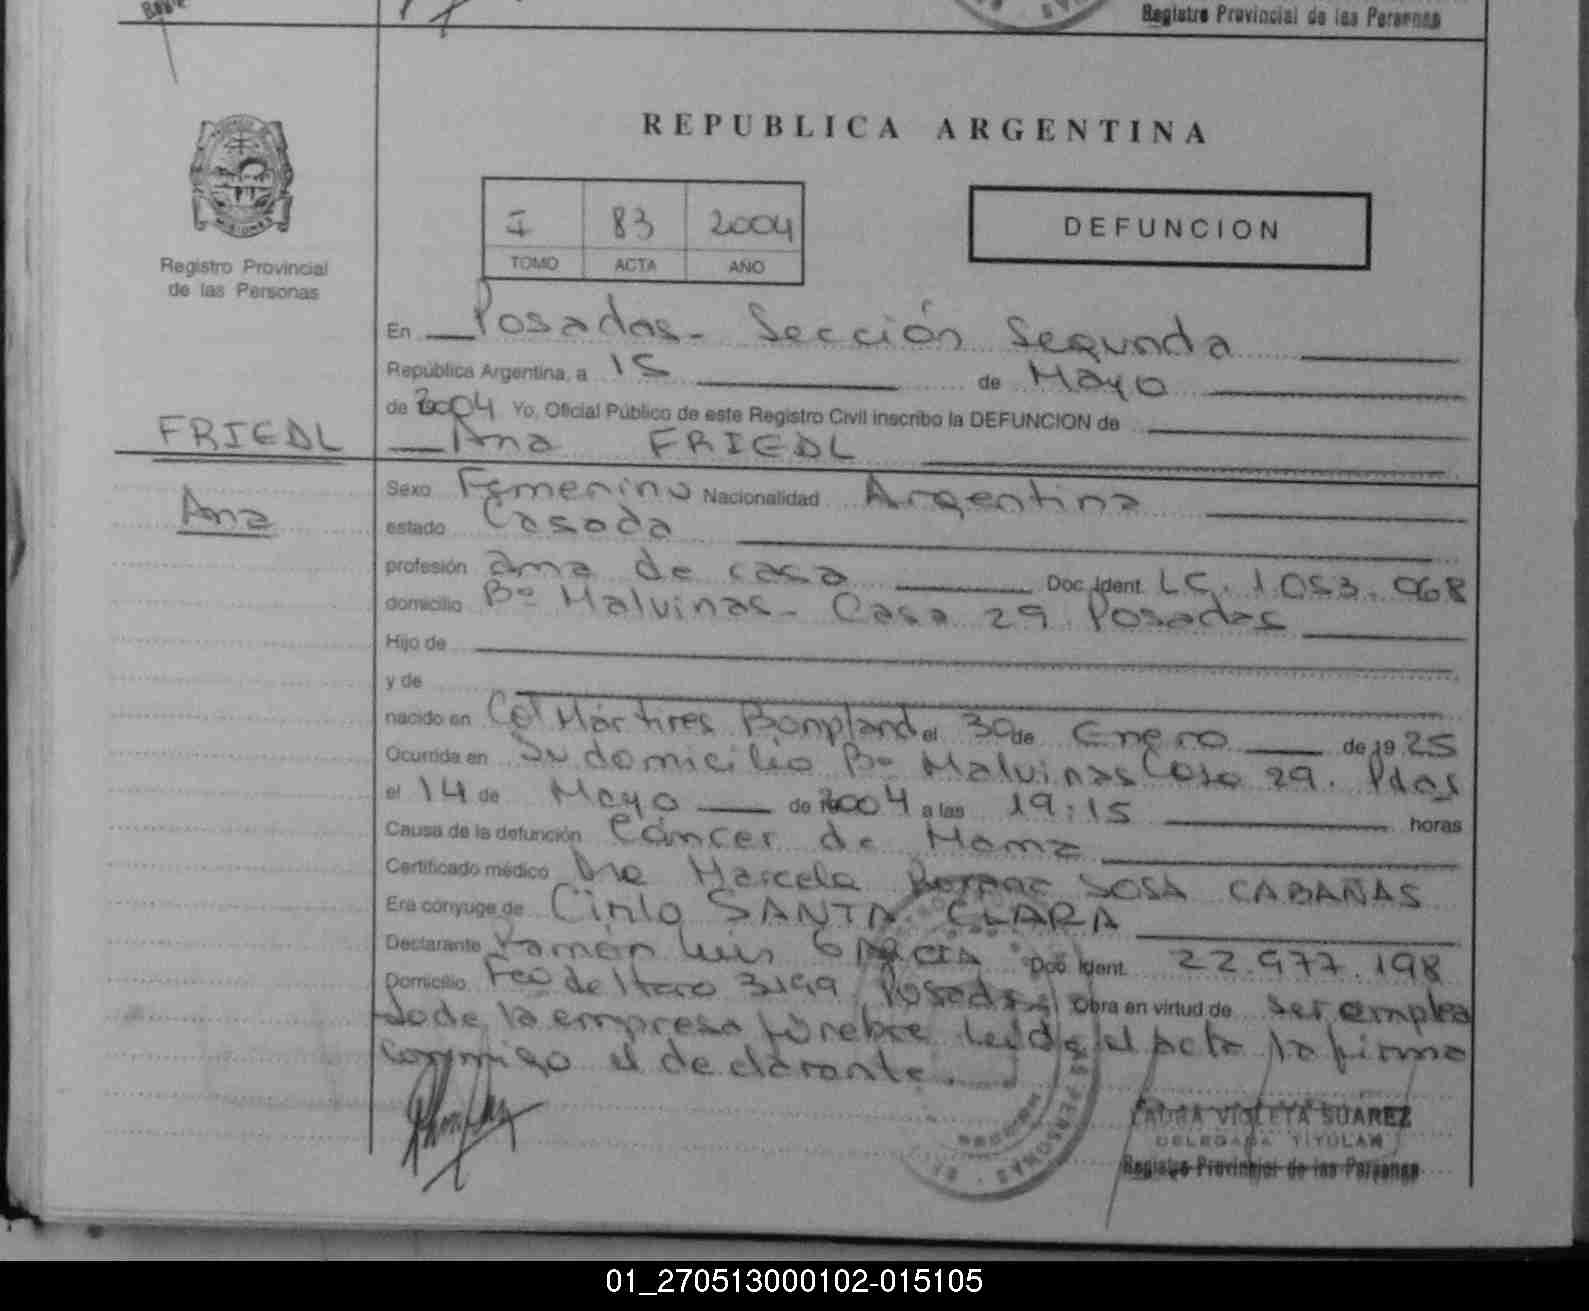 Registro Provincial de las Personas
REPUBLICA ARGENTINA
I 83 2004
TOMO ACTA AÑO
DEFUNCION
Registro Provincial
de las Personas
En Posadas - Sección Segunda
República Argentina, a 15 de Mayo
de 2004 Yo, Oficial Público de este Registro Civil inscribo la DEFUNCION de
FRIEDL
Ana FRIEDL
Ana
Sexo Femenino Nacionalidad Argentina
estado Casada
profesión ama de casa Doc. Ident. LC. 1.053.968
domicilio Bº Malvinas - Casa 29 Posadas
Hijo de
y de
nacido en Col Mártires Bonpland el 30 de Enero de 1925
Ocurrida en Su domicilio Bº Malvinas Casa 29. Pdas
el 14 de Mayo de 2004 a las 19:15 horas
Causa de la defunción Cáncer de Mama
Certificado médico Dra Marcela SOSA CABAÑAS
Era cónyuge de Cirilo SANTA CLARA
Declarante Ramón Luis GARCIA Doc. Ident. 22.977.198
Domicilio Fco de Haro 3199 Posadas Obra en virtud de ser emplea
do de la empresa fúnebre leída el acta la firma
conmigo el declarante.
VIOLETA SUAREZ
DELEGADA TITULAR
Registro Provincial de las Personas
01_270513000102-015105